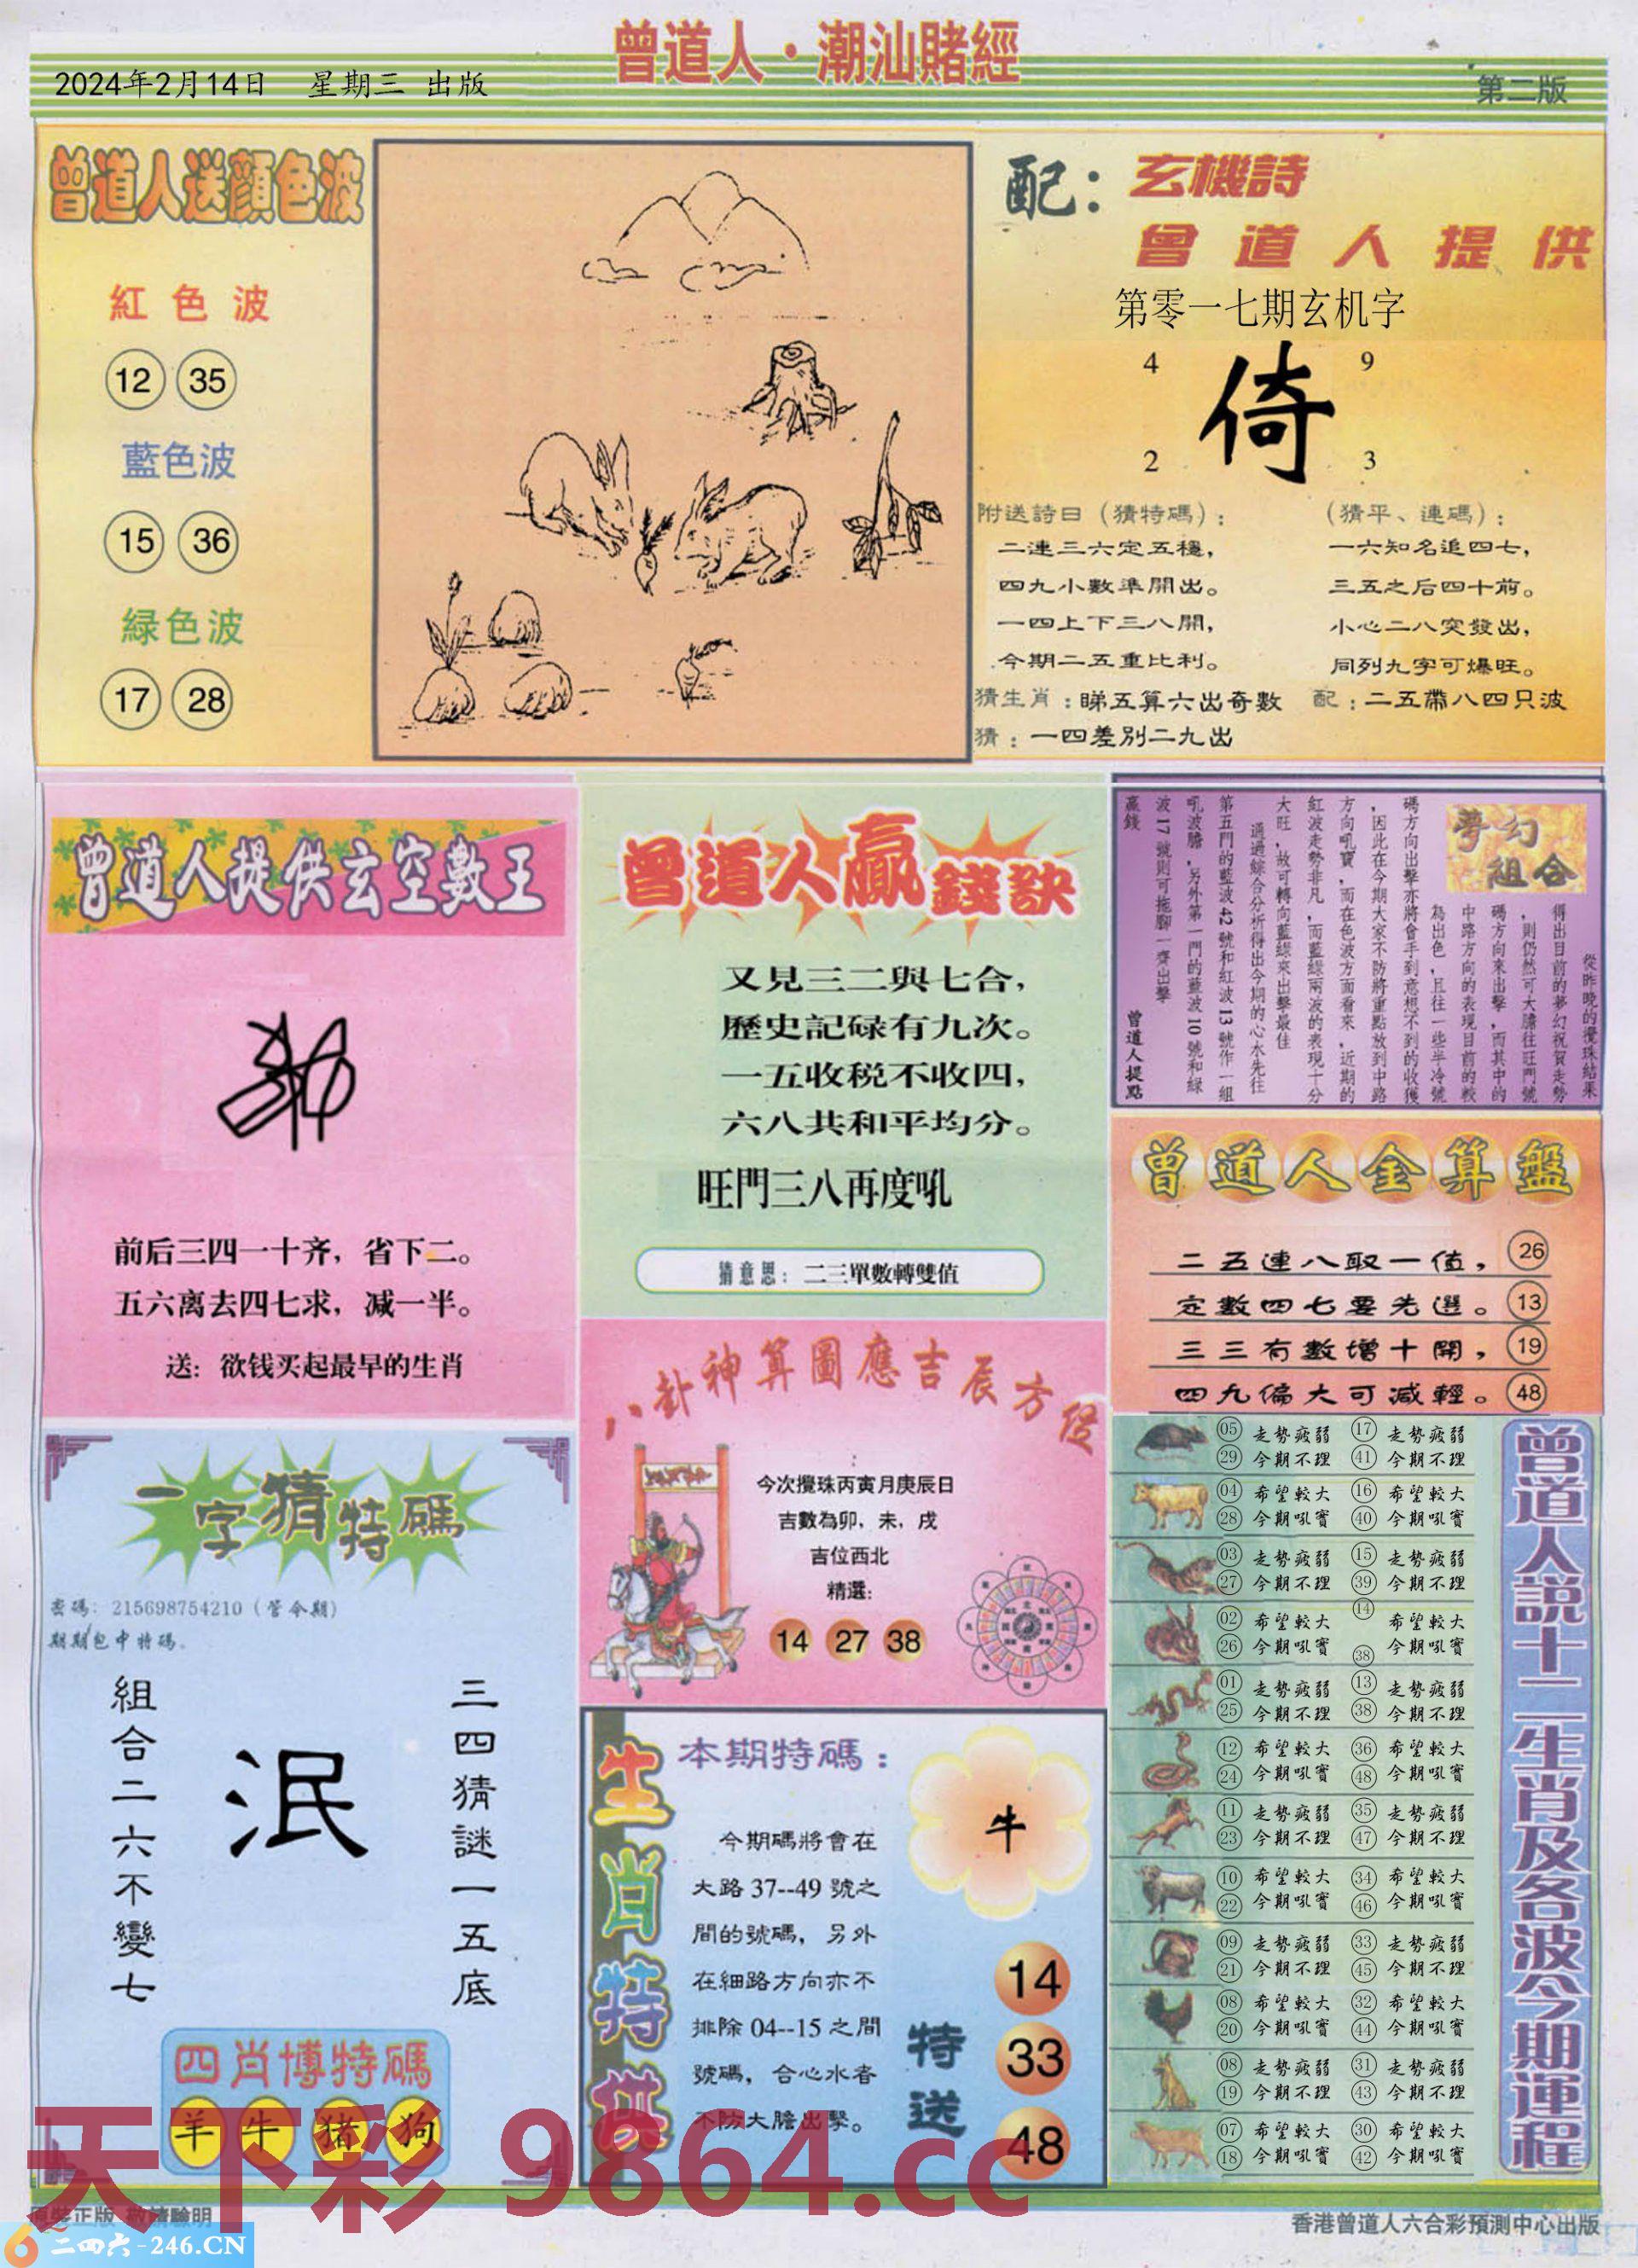 曾道人·潮汕賭經
2024年2月14日 星期三 出版
第二版
曾道人送顔色波
紅色波
12 35
藍色波
15 36
緑色波
17 28
配：玄機詩
曾道人提供
第零一七期玄机字
4 9
倚
2 3
附送詩曰（猜特碼）：
二連三六定五穩，
四九小數準開出。
一四上下三八開，
今期二五重比利。
（猜平、連碼）：
一六知名追四七，
三五之后四十前。
小心二八突發出，
同列九字可爆旺。
猜生肖：睇五算六出奇數 配：二五帶八四只波
猜：一四差別二九出
曾道人提供玄空數王
前后三四一十齐，省下二。
五六离去四七求，减一半。
送：欲钱买起最早的生肖
曾道人贏錢訣
又見三二與七合，
歷史記碌有九次。
一五收税不收四，
六八共和平均分。
旺門三八再度吼
猜意思：二三單數轉雙值
夢幻組合
從昨晚的攪珠結果
得出目前的夢幻祝賀走勢
，則仍然可大膽往旺門號
碼方向來出擊，而其中的
中路方向的表現目前的較
為出色，且往一些半冷號
碼方向出擊亦將會手到意想不到的收獲
，因此在今期大家不防將重點放到中路
方向吼寶，而在色波方面看來，近期的
紅波走勢非凡，而藍綠兩波的表現十分
大旺，故可轉向藍綠來出擊最佳
通過綜合分析得出今期的心水先往
第五門的藍波42號和紅波13號作一組
吼波膽，另外第一門的藍波10號和綠
波17號則可拖腳一齊出擊
贏錢
曾道人提點
曾道人金算盤
二五連八取一值，26
定數四七要先選。13
三三有數增十開，19
四九偏大可减輕。48
八卦神算圖應吉辰方位
今次攪珠丙寅月庚辰日
吉數為卯，未，戌
吉位西北
精選：
14 27 38
一字猜特碼
密碼：215698754210（管令期）
期期包中特碼。
三四猜謎一五底
泯
組合二六不變七
四肖博特碼
羊 牛 猪 狗
生肖特供
本期特碼：
牛
今期碼將會在
大路37--49號之
間的號碼，另外
在細路方向亦不
排除04--15之間
號碼，合心水者
不防大膽出擊。
特送
14
33
48
曾道人說十二生肖及各波今期運程
05 走勢疲弱 17 走勢疲弱
29 今期不理 41 今期不理
04 希望較大 16 希望較大
28 今期吼實 40 今期吼實
03 走勢疲弱 15 走勢疲弱
27 今期不理 39 今期不理
02 希望較大 14 希望較大
26 今期吼實 38 今期吼實
01 走勢疲弱 13 走勢疲弱
25 今期不理 38 今期不理
12 希望較大 36 希望較大
24 今期吼實 48 今期吼實
11 走勢疲弱 35 走勢疲弱
23 今期不理 47 今期不理
10 希望較大 34 希望較大
22 今期吼實 46 今期吼實
09 走勢疲弱 33 走勢疲弱
21 今期不理 45 今期不理
08 希望較大 32 希望較大
20 今期吼實 44 今期吼實
08 走勢疲弱 31 走勢疲弱
19 今期不理 43 今期不理
07 希望較大 30 希望較大
18 今期吼實 42 今期吼實
天下彩 9864.cc
原裝正版 敬請驗明
二四六-246.CN
香港曾道人六合彩預測中心出版